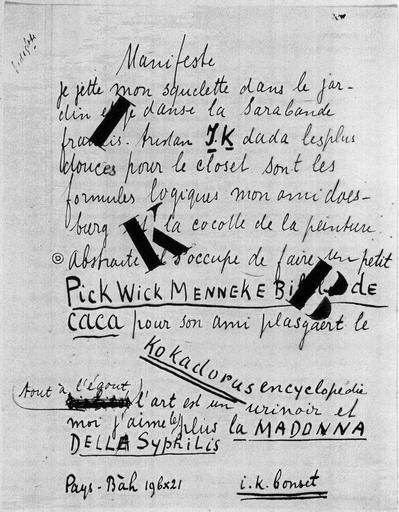 Manifeste
je jette mon squelette dans le jar-
din et je danse la Sarabande
français. tristan I.K dada les plus
douces pour le closet sont les
formules logiques mon ami does-
burg la cocotte de la peinture
Abstraite s'occupe de faire un petit
PICK WICK MENNEKE de
caca pour son ami plasgaert le
Kokadorus encyclopédie
tout à l'égout
l'art est un urinoir et
moi j'aime le plus la MADONNA
DELLA SyPhiLis
Pays-Bàh 196x21 i.k. bonset